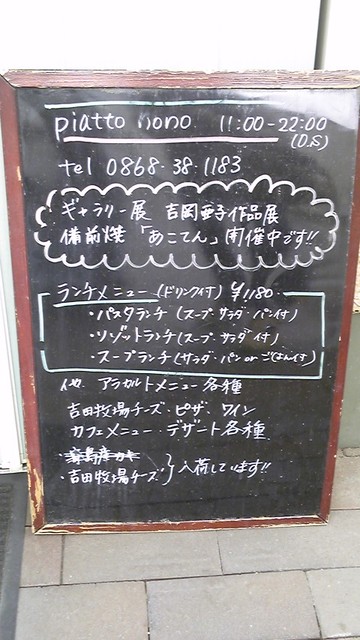 piatto nono 11:00-22:00
(O.S)
tel 0868・38・1183
ギャラリー展 吉岡亜子作品展
備前焼 「あこてん」開催中です!!
ランチメニュー (ドリンク付) ¥1180
・パスタランチ (スープ・サラダ・パン付)
・リゾットランチ (スープ・サラダ 付)
・スープランチ (サラダ・パン or ごはん付)
他 アラカルトメニュー各種
吉田牧場チーズ・ピザ、ワイン
カフェメニュー・デザート各種
・吉田牧場チーズ } 入荷しています!!